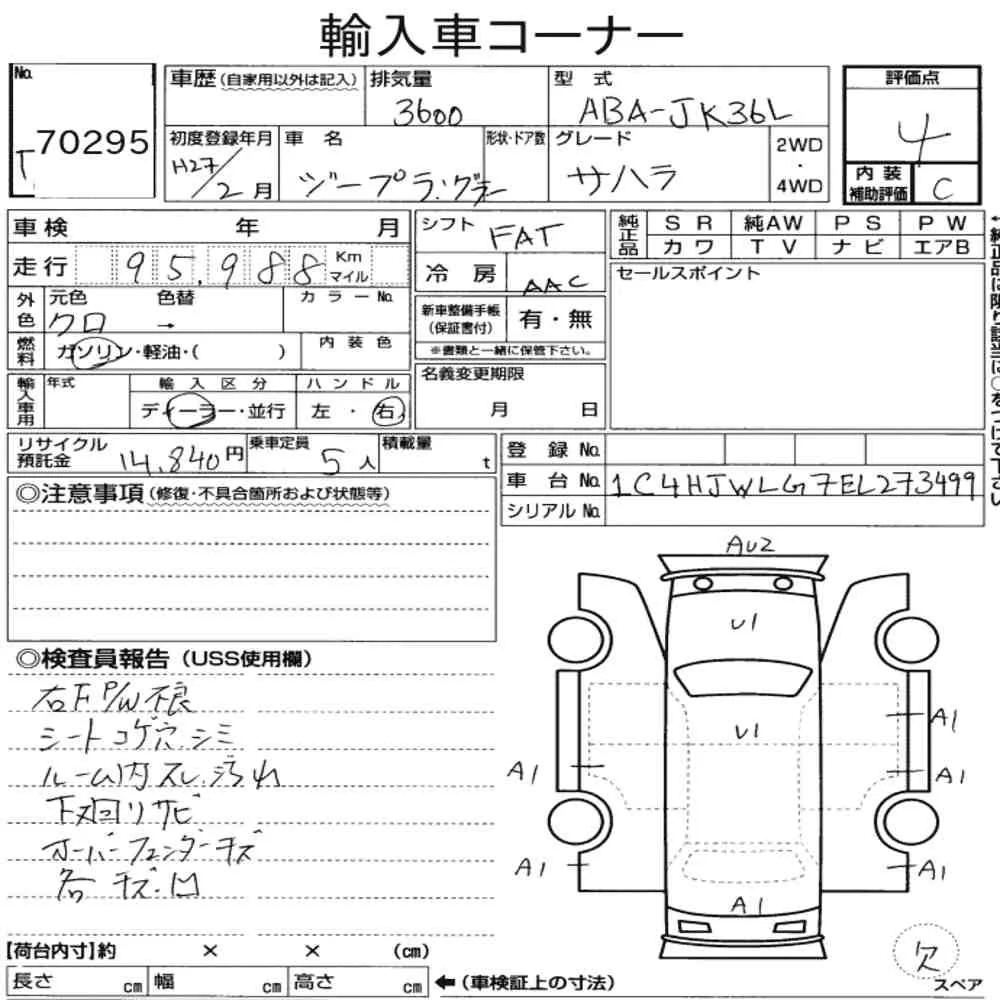 輸入車コーナー
No. 70295
車歴(自家用以外は記入) 排気量 3600 型式 ABA-JK36L 評価点 4
初度登録年月 H27/2月 車名 ジープラングラー 形状・ドア数 グレード サハラ 2WD・4WD 内装補助評価 C
車検 年 月 シフト FAT 純正品 SR 純AW PS PW
カワ TV ナビ エアB
走行 95,988 Km マイル 冷房 AAC セールスポイント
外色 元色 クロ 色替 → カラーNo. 新車整備手帳(保証書付) 有・無
燃料 ガソリン・軽油・( ) 内装色 ※書類と一緒に保管下さい。
輸入車用 年式 輸入区分 ディーラー・並行 ハンドル 左・右 名義変更期限 月 日
リサイクル預託金 14,840円 乗車定員 5人 積載量 t 登録No.
車台No. 1C4HJWLG7EL273499
シリアルNo.
◎注意事項(修復・不具合箇所および状態等)
◎検査員報告(USS使用欄)
右F P/W不良
シートコゲ穴.シミ
ルーム内スレ.汚れ
下廻りサビ
オーバーフェンダーキズ
各キズ.凹
AU2
U1
U1
A1
A1 A1
A1 A1
A1
欠
スペア
【荷台内寸】約 × × (cm)
長さ cm 幅 cm 高さ cm ←(車検証上の寸法)